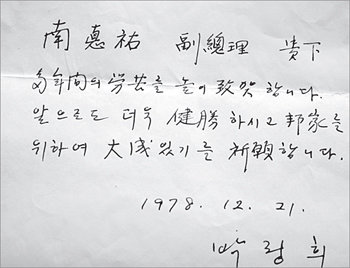 南悳祐 副總理 貴下
多年間의 勞苦를 높이 致賀합니다.
앞으로도 더욱 健勝하시고 邦家를
위하여 大成있기를 祈願합니다.
1978. 12. 21.
박정희